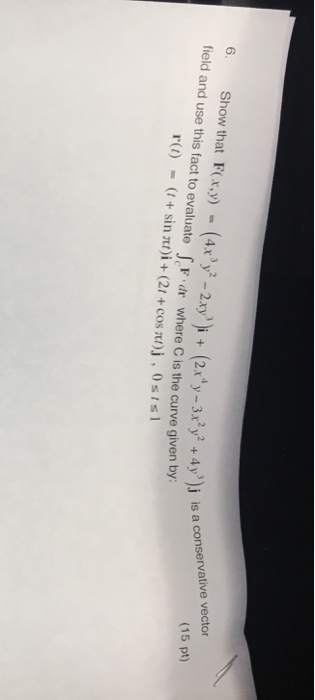 6. Show that F(x,y) = (4x³y² – 2xy³)i + (2x⁴y – 3x²y² + 4y³)j is a conservative vector
field and use this fact to evaluate ∫_C F·dr where C is the curve given by:
r(t) = (t + sin πt)i + (2t + cos πt)j, 0 ≤ t ≤ 1
(15 pt)